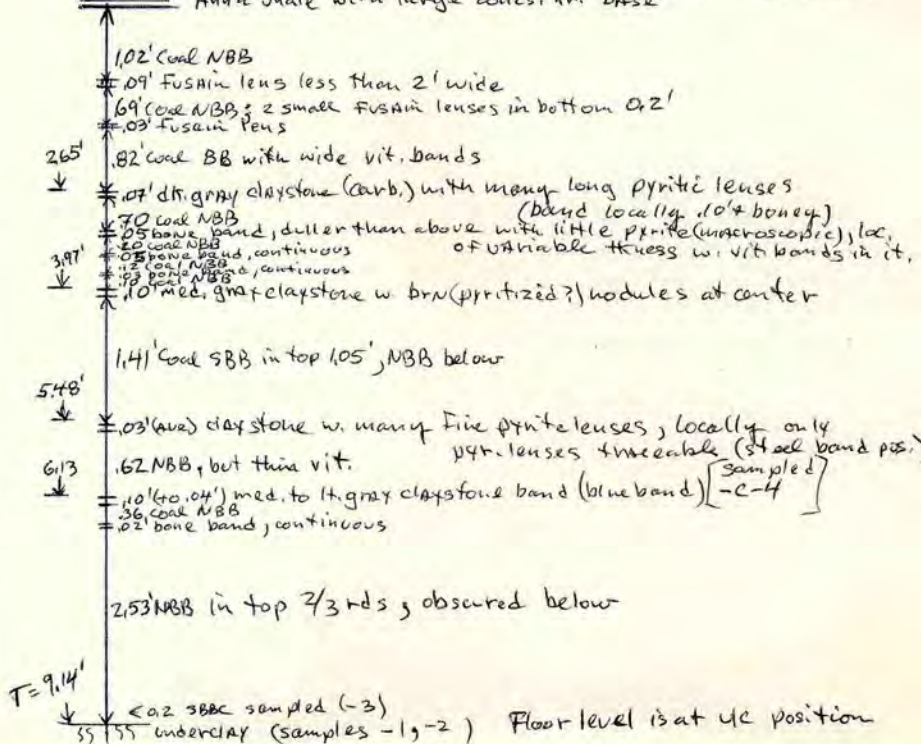 Anna Shale with large concs. in base
1.02' Coal NBB
.09' Fusain lens less than 2' wide
.69' Coal NBB; 2 small Fusain lenses in bottom 0.2'
.03' fusain lens
2.65'
.82' coal BB with wide vit. bands
.07' dk. gray claystone (carb.) with many long pyritic lenses
(band locally .10'+ boney)
.70 coal NBB
.05 bone band, duller than above with little pyrite (macroscopic), loc.
of variable thness w. vit bands in it,
.20 coal NBB
3.97'
.05 bone band, continuous
.12 coal NBB
.03 bone band, continuous
.10 coal NBB
.10' med. gray claystone w. brn (pyritized?) nodules at center
1.41' Coal SBB in top 1.05', NBB below
5.48'
.03' (Ave) claystone w. many Fine pyrite lenses, locally only
pyr. lenses traceable (steel band pos.)
6.13
.62 NBB, but thin vit.
.10' (to .04') med. to lt. gray claystone band (blue band) [sampled
-C-4]
.36 coal NBB
.02' bone band, continuous
2.53' NBB in top 2/3 rds; obscured below
T = 9.14'
<0.2 SBBC sampled (-3)
55 55 underclay (samples -1, -2) Floor level is at UC position